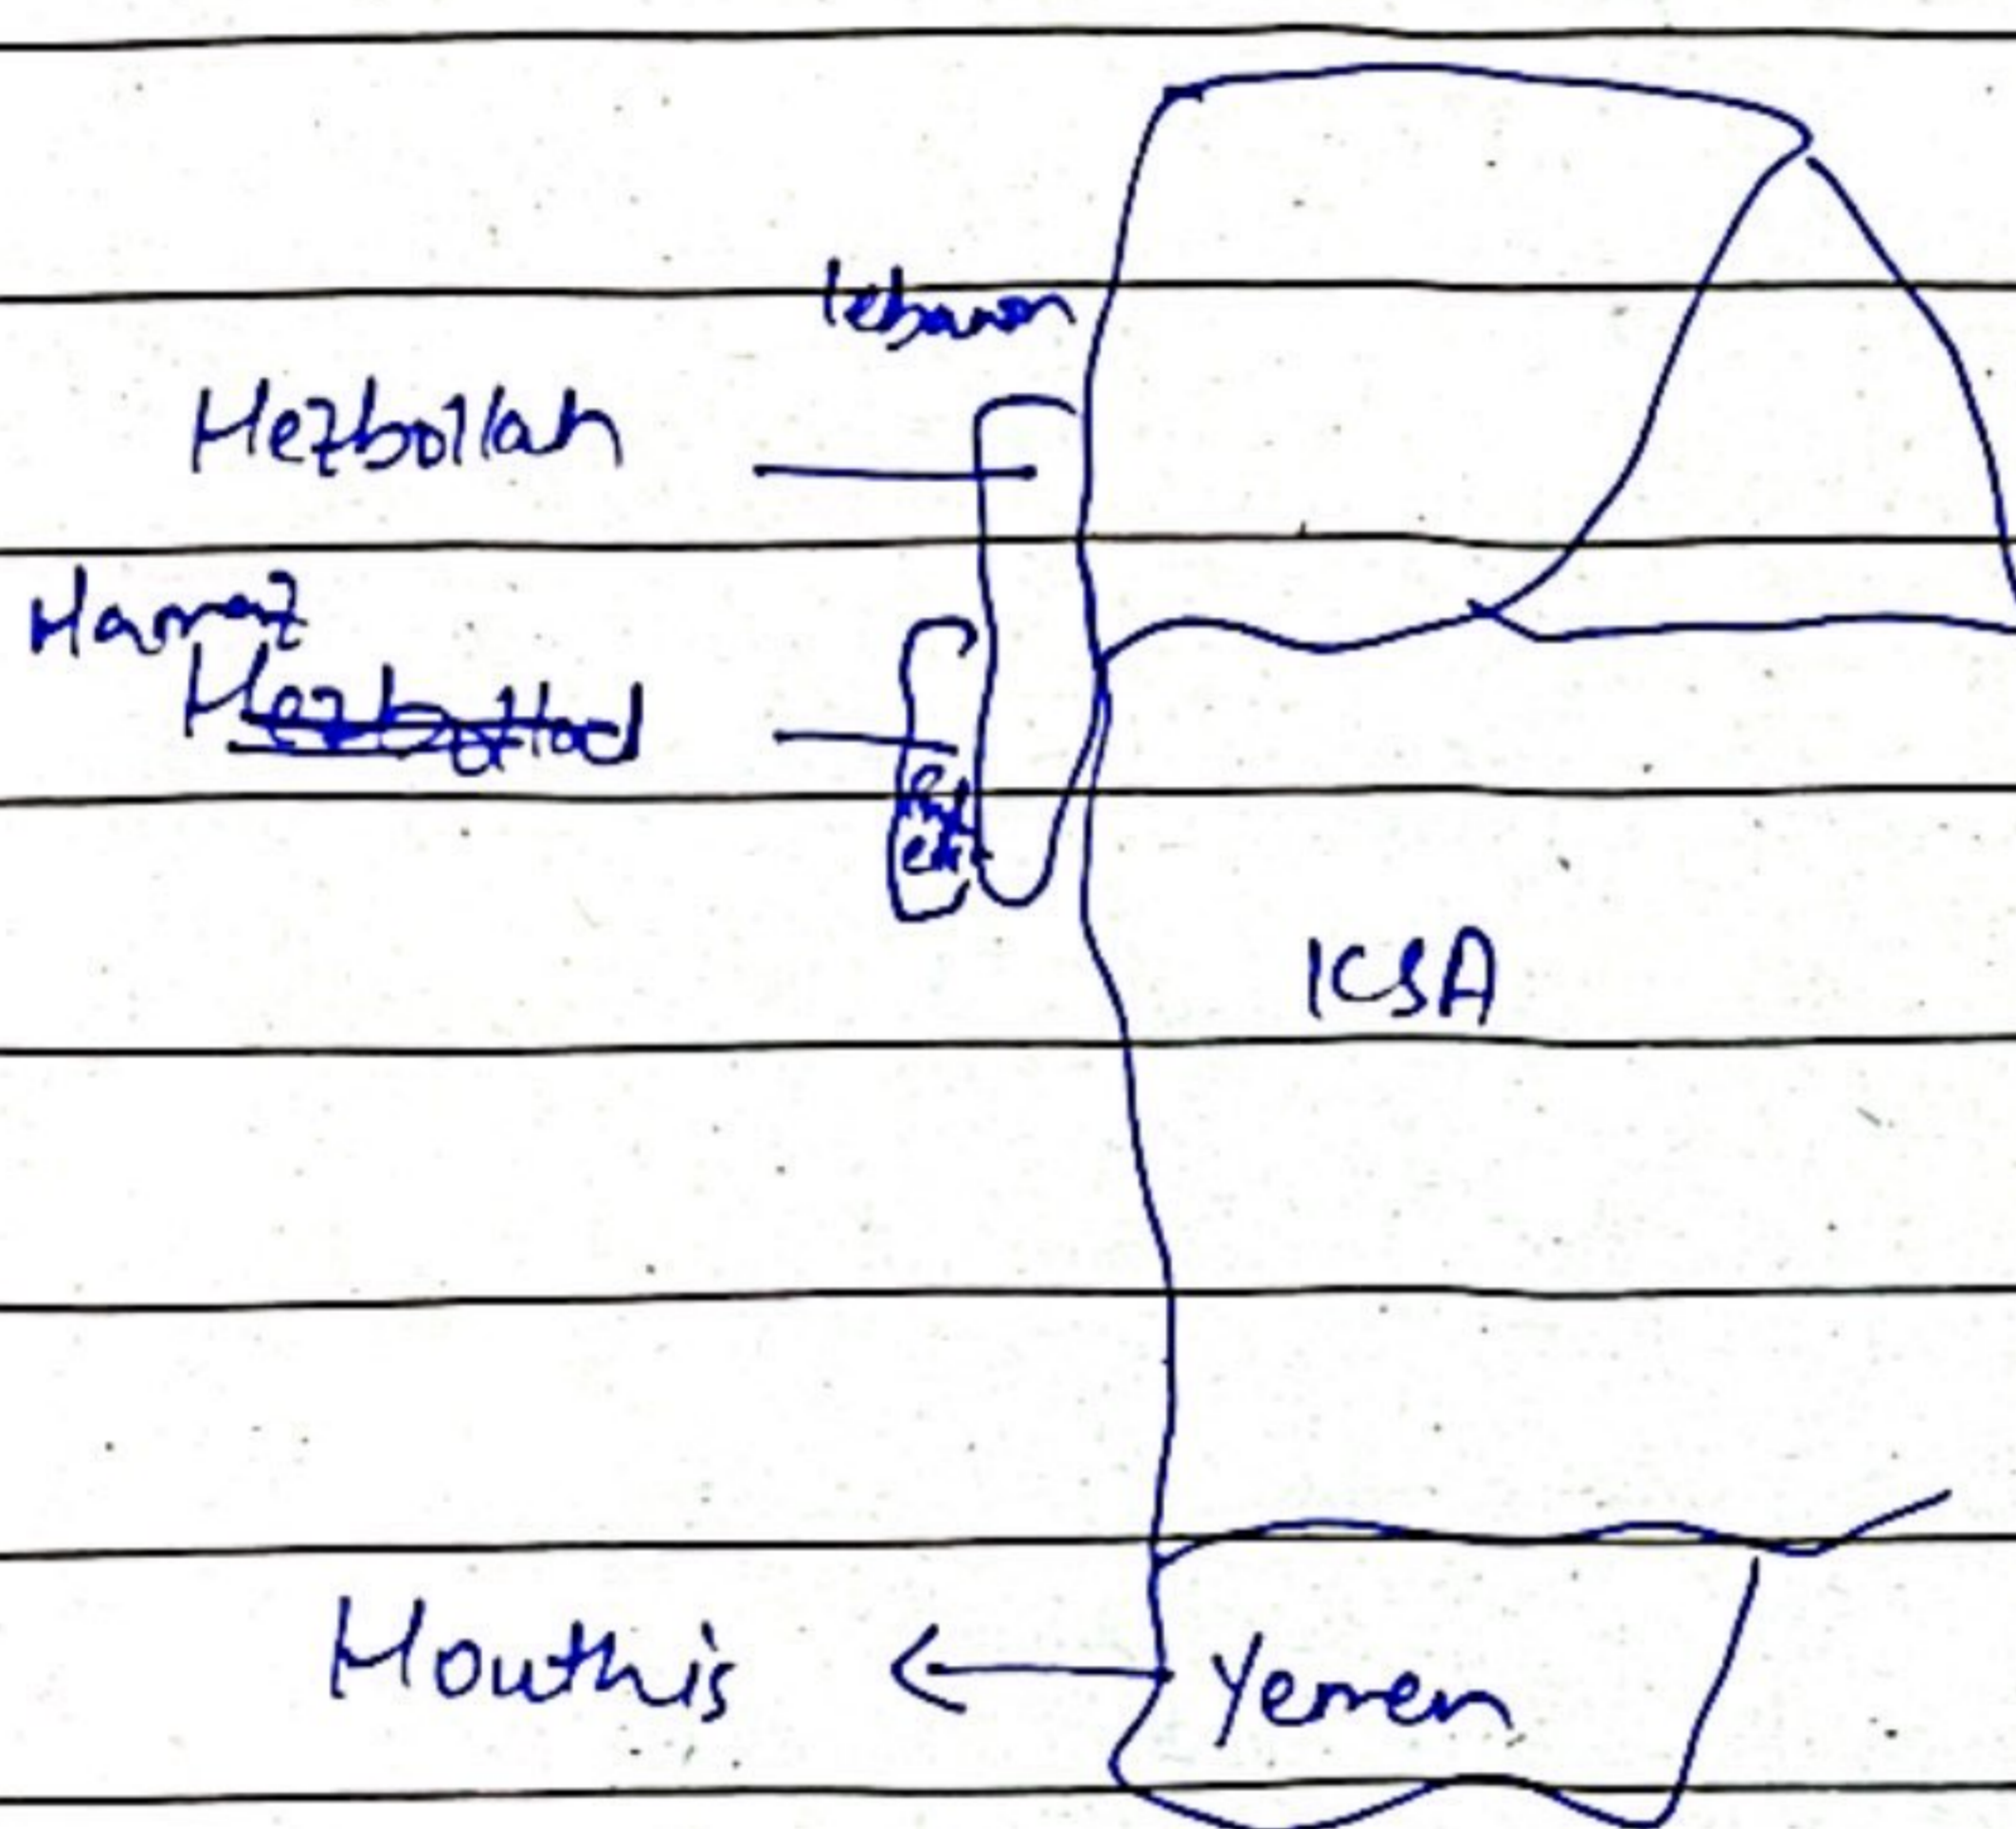 lebanon
Hezbollah
Hamaz
KSA
Houthis
Yemen